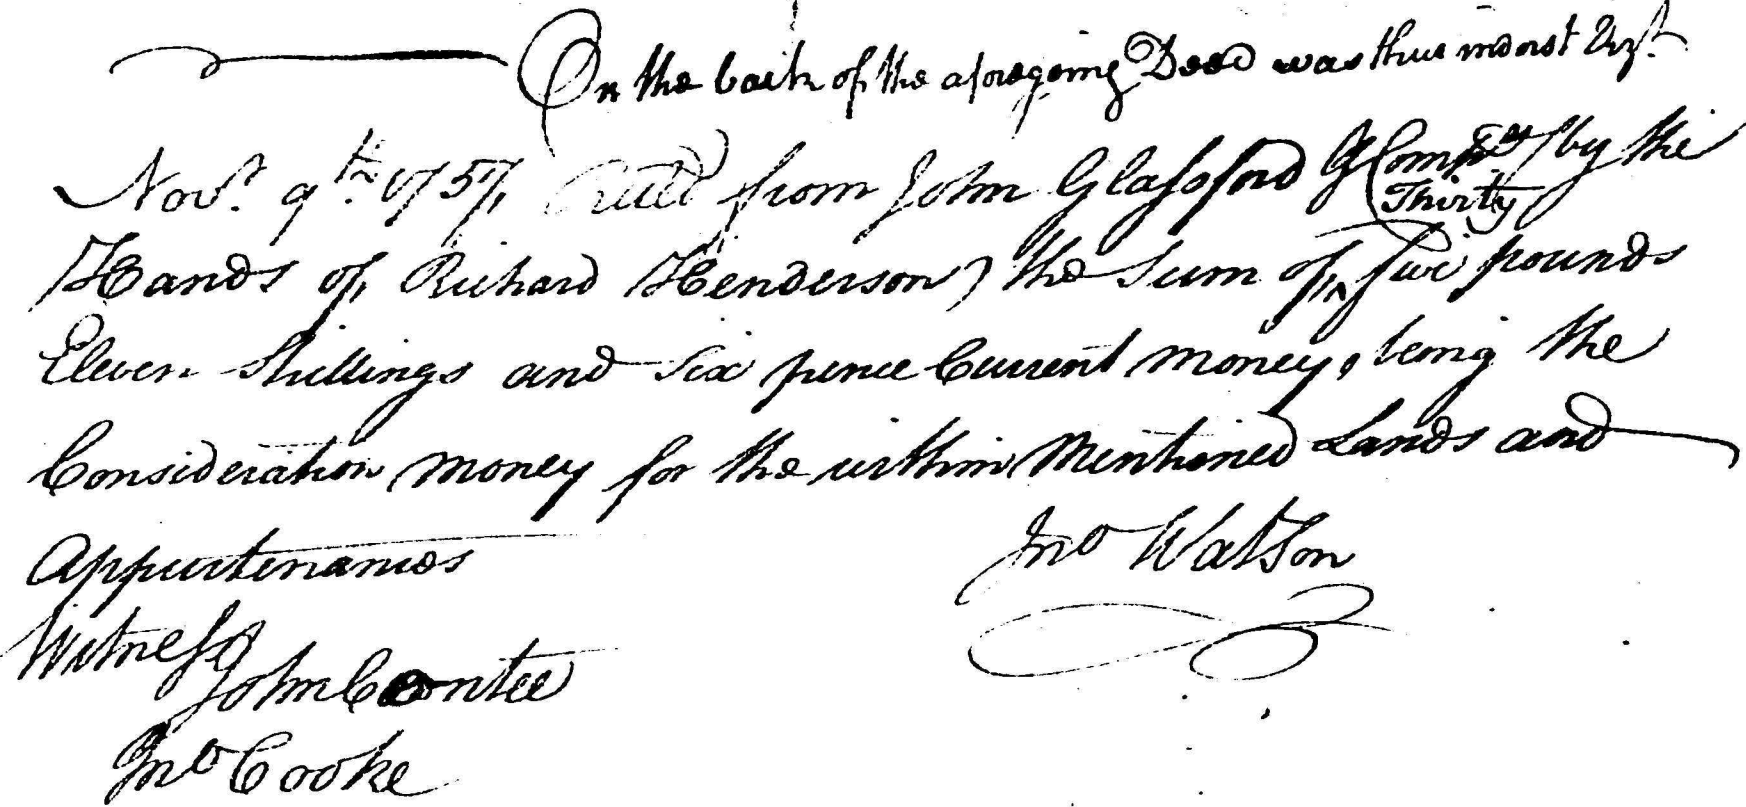 On the back of the aforegoing Deed was thus indorst Vizt.
Novr. 9th. 1757, Recd from John Glassford & Compy (by the
Hands of Richard Henderson) the Sum of Thirty five pounds
Eleven Shillings and Six pence Current Money, being the
Consideration money for the within Mentioned Lands and
Appurtenances
Jno Watson
Witness
John Contee
Jno Cooke